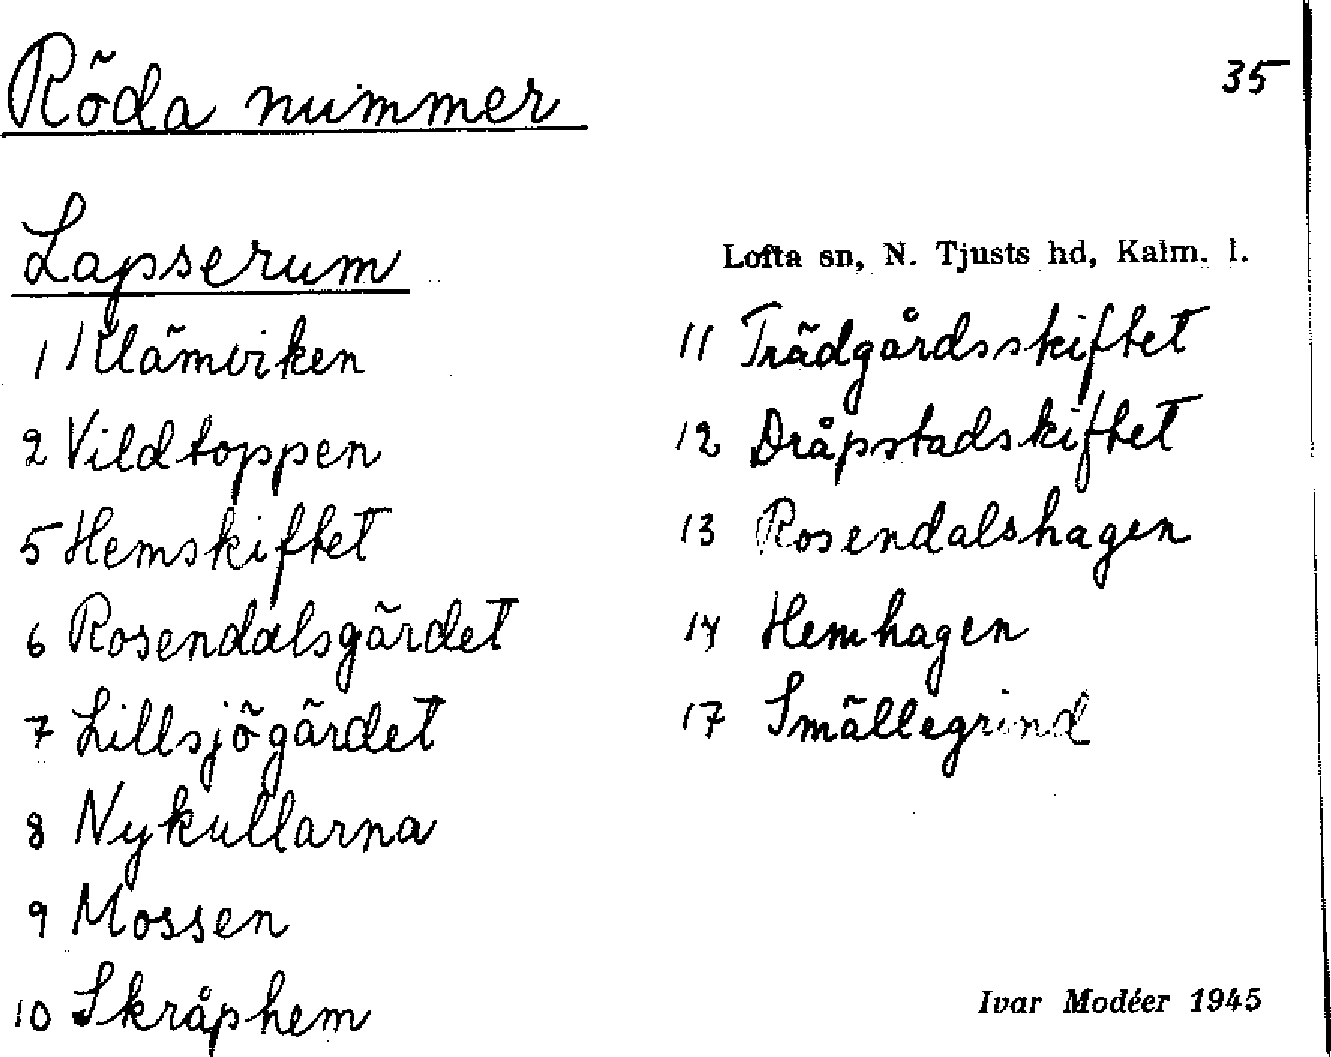 Röda nummer
35
Lapserum
Lofta sn, N. Tjusts hd, Kalm. l.
1 Klämviken
2 Vildtoppen
5 Hemskiftet
6 Rosendalsgärdet
7 Lillsjögärdet
8 Nykullarna
9 Mossen
10 Skråphem
11 Trädgårdsskiftet
12 Dråpstadskiftet
13 Rosendalshagen
14 Hemhagen
17 Smällegrind
Ivar Modéer 1945